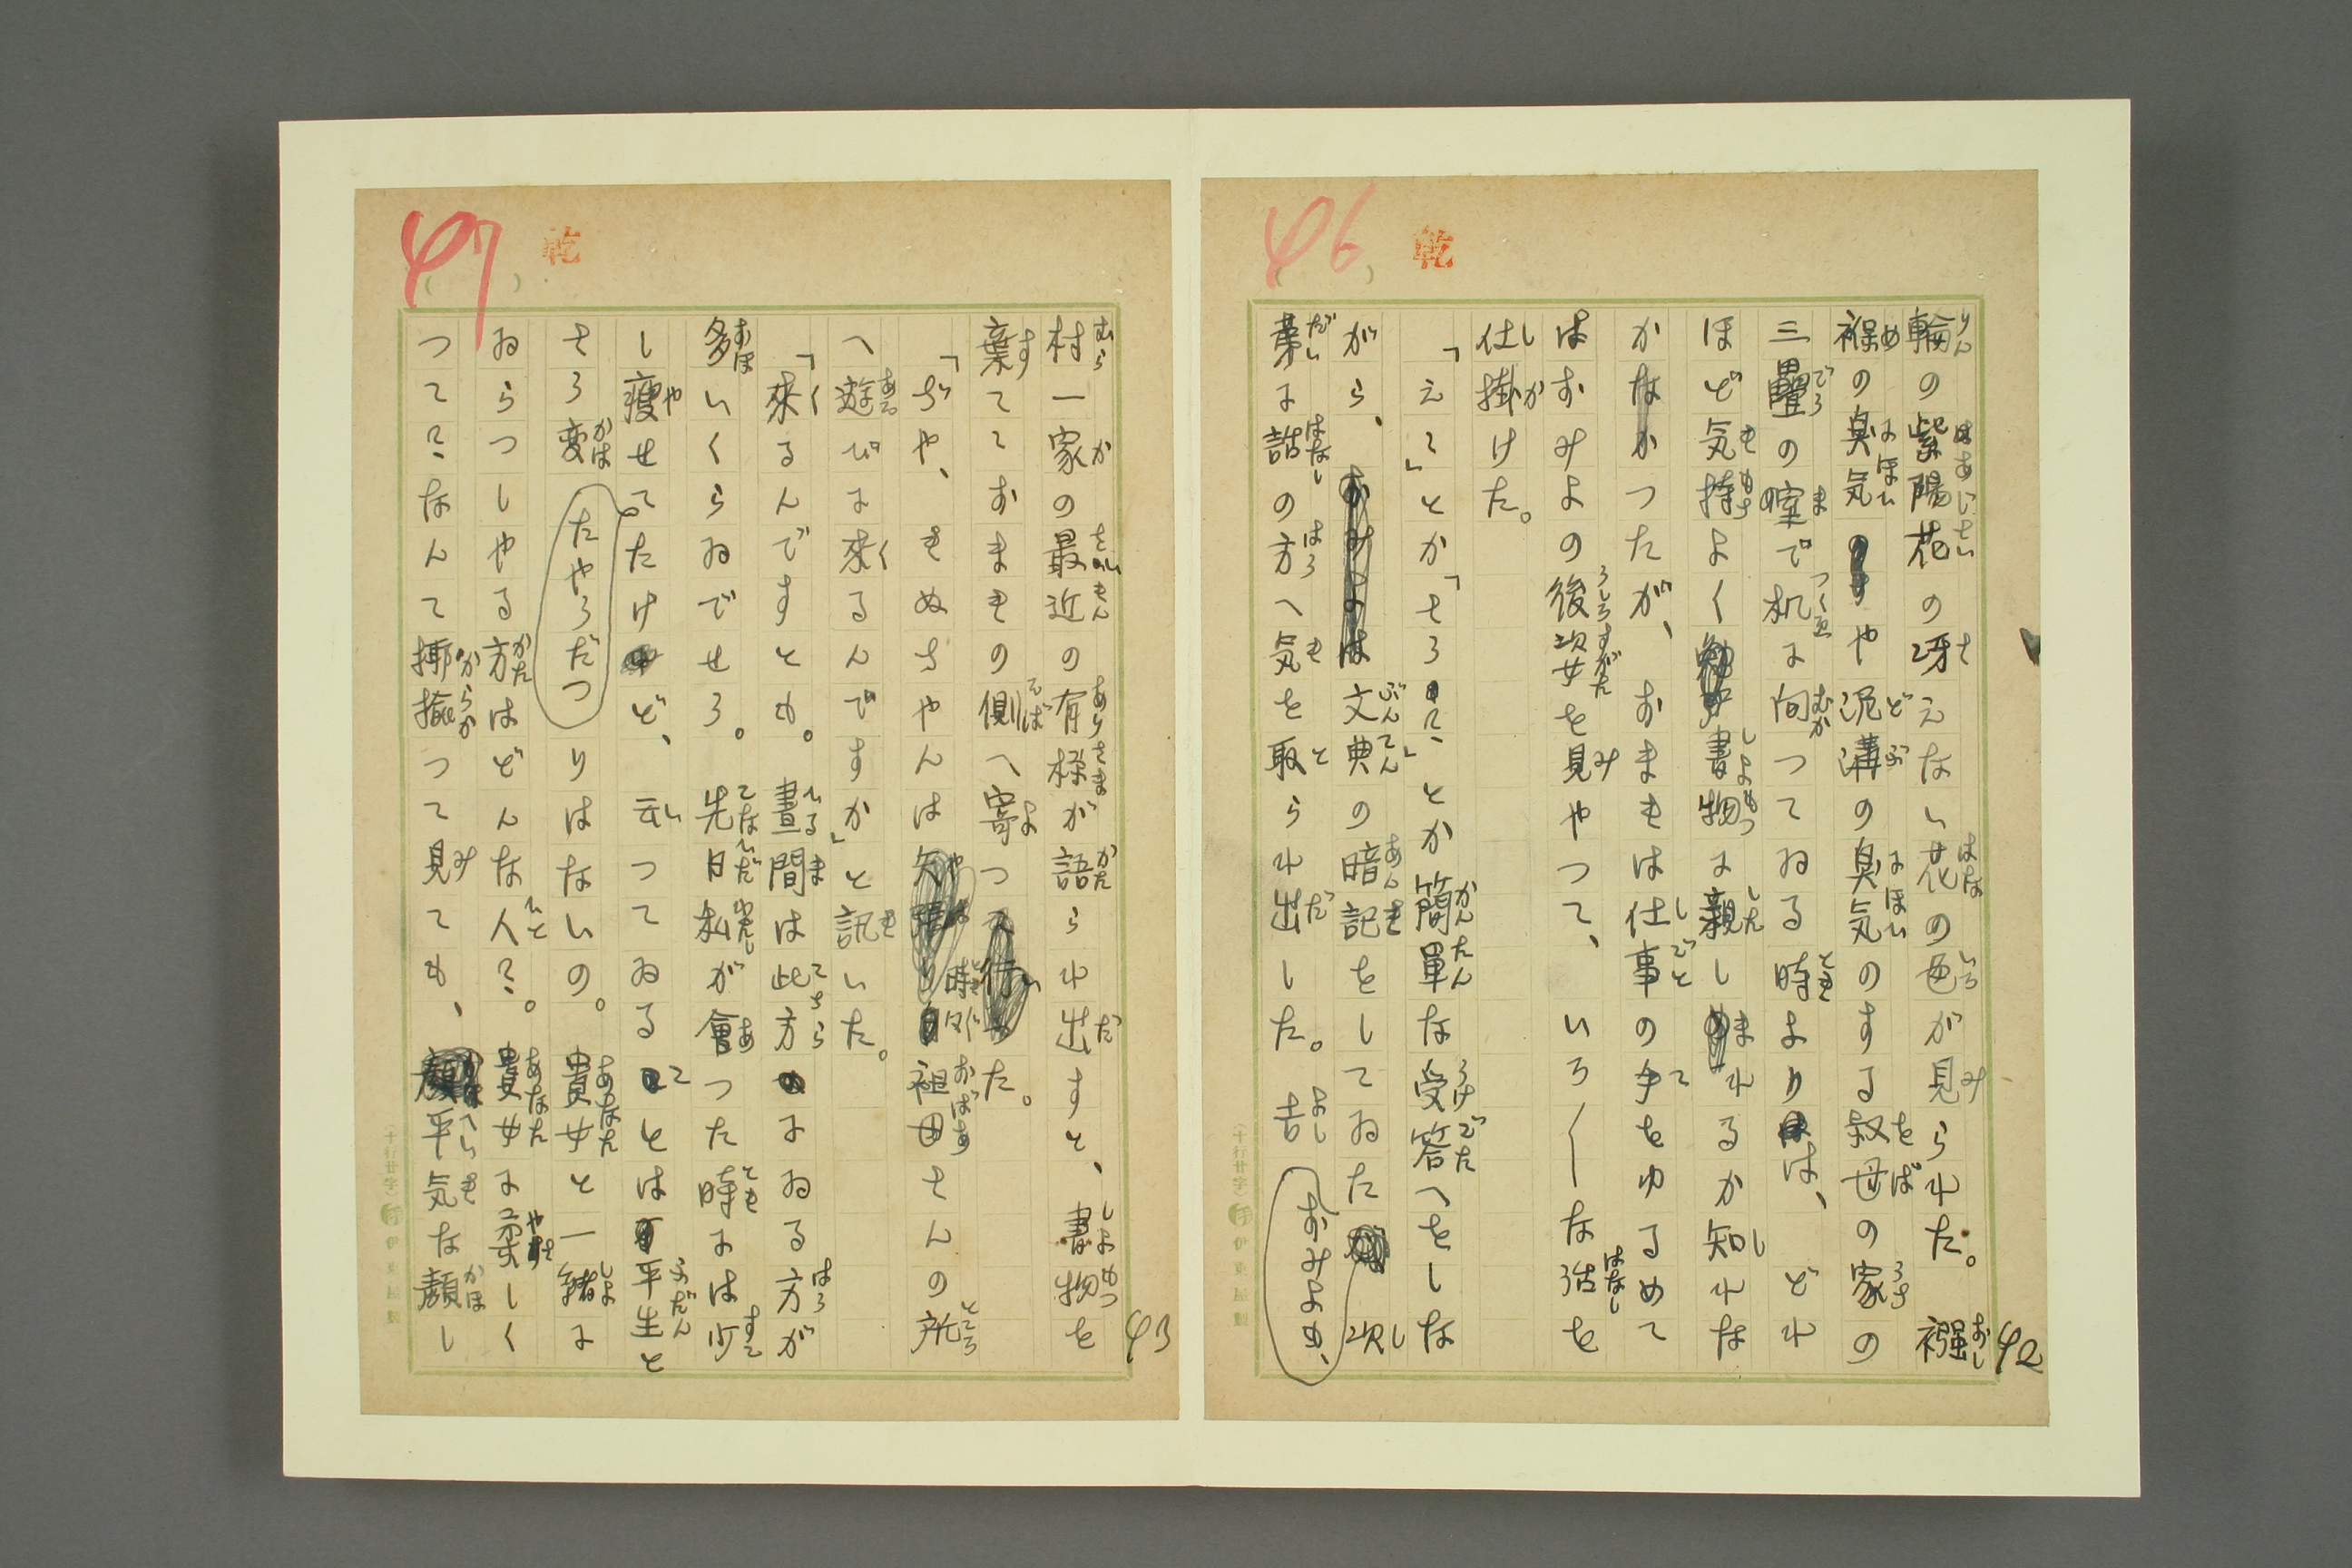 46
乾
42
輪の紫陽花の冴えない花の色が見られた。襁
褓の臭気や泥溝の臭気のする叔母の家の
三疊の窓で机に向つてゐる時よりは、どれ
ほど気持よく書物に親しまれるか知れな
かなかつたが、おまきは仕事の手をゆるめて
はおみよの後姿を見やつて、いろ〱な話を
仕掛けた。
「えゝ」とか「さうね」とか簡単な受答へをしな
がら、文典の暗記をしてゐた 次
第に話の方へ気を取られ出した。吉
おみよも、
(十行廿字) 伊東屋製
47
乾
43
村一家の最近の有様が語られ出すと、書物を
棄てておまきの側へ寄つた。
「ぢや、きぬちやんは時々祖母さんの所
へ遊びに來るんですか」と訊いた。
「來るんですとも。晝間は此方にゐる方が
多いくらゐでせう。先日私が會つた時には少
し瘦せてたけど、云つてゐることは平生と
さう変りはないの。貴女と一緒に
たやうだつ
ゐらつしやる方はどんな人?。貴女に柔しく
つて?なんて揶揄つて見ても、平気な顏し
(十行廿字) 伊東屋製